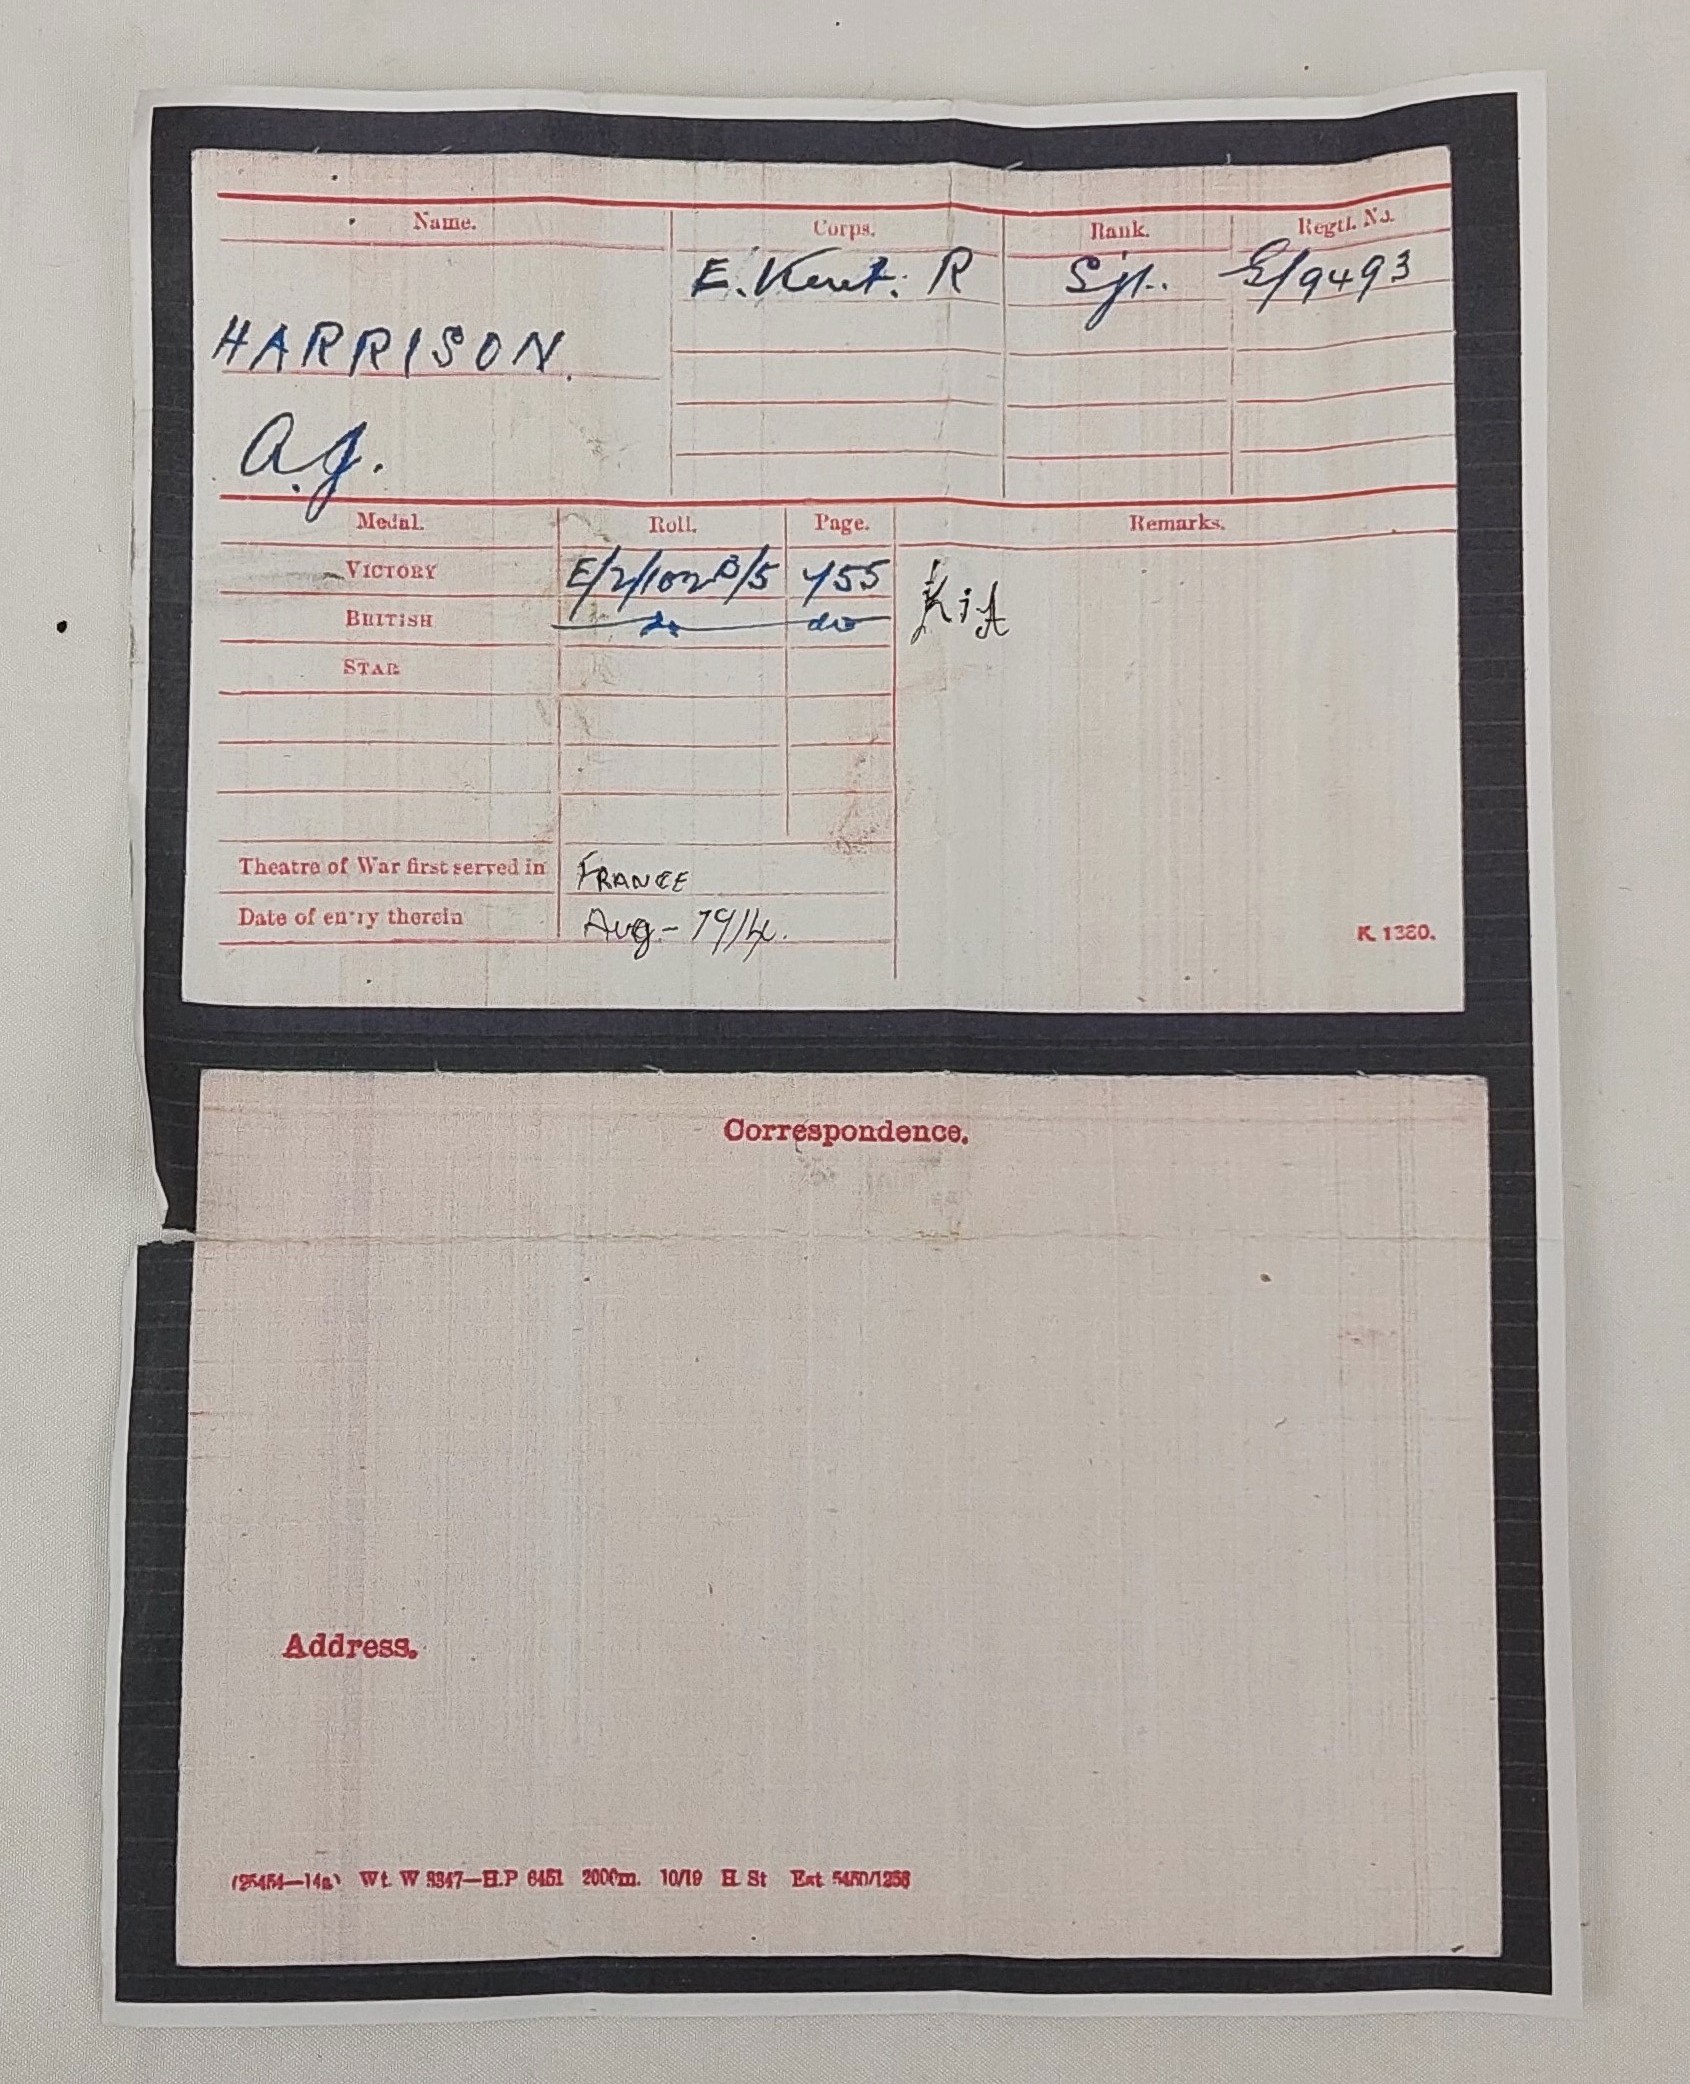 Name. Corps. Rank. Regtl. No.
E. Kent. R Sjt. G/9493
HARRISON.
A.J.
Medal. Roll. Page. Remarks.
VICTORY E/2/102B/5 455 KiA
BRITISH do do
STAR
Theatre of War first served in FRANCE
Date of entry therein Aug - 1914.
K. 1380.
Correspondence.
Address.
(25454—14a) Wt. W 3347—H.P 6451 2000m. 10/19 H. St Est 5480/1256